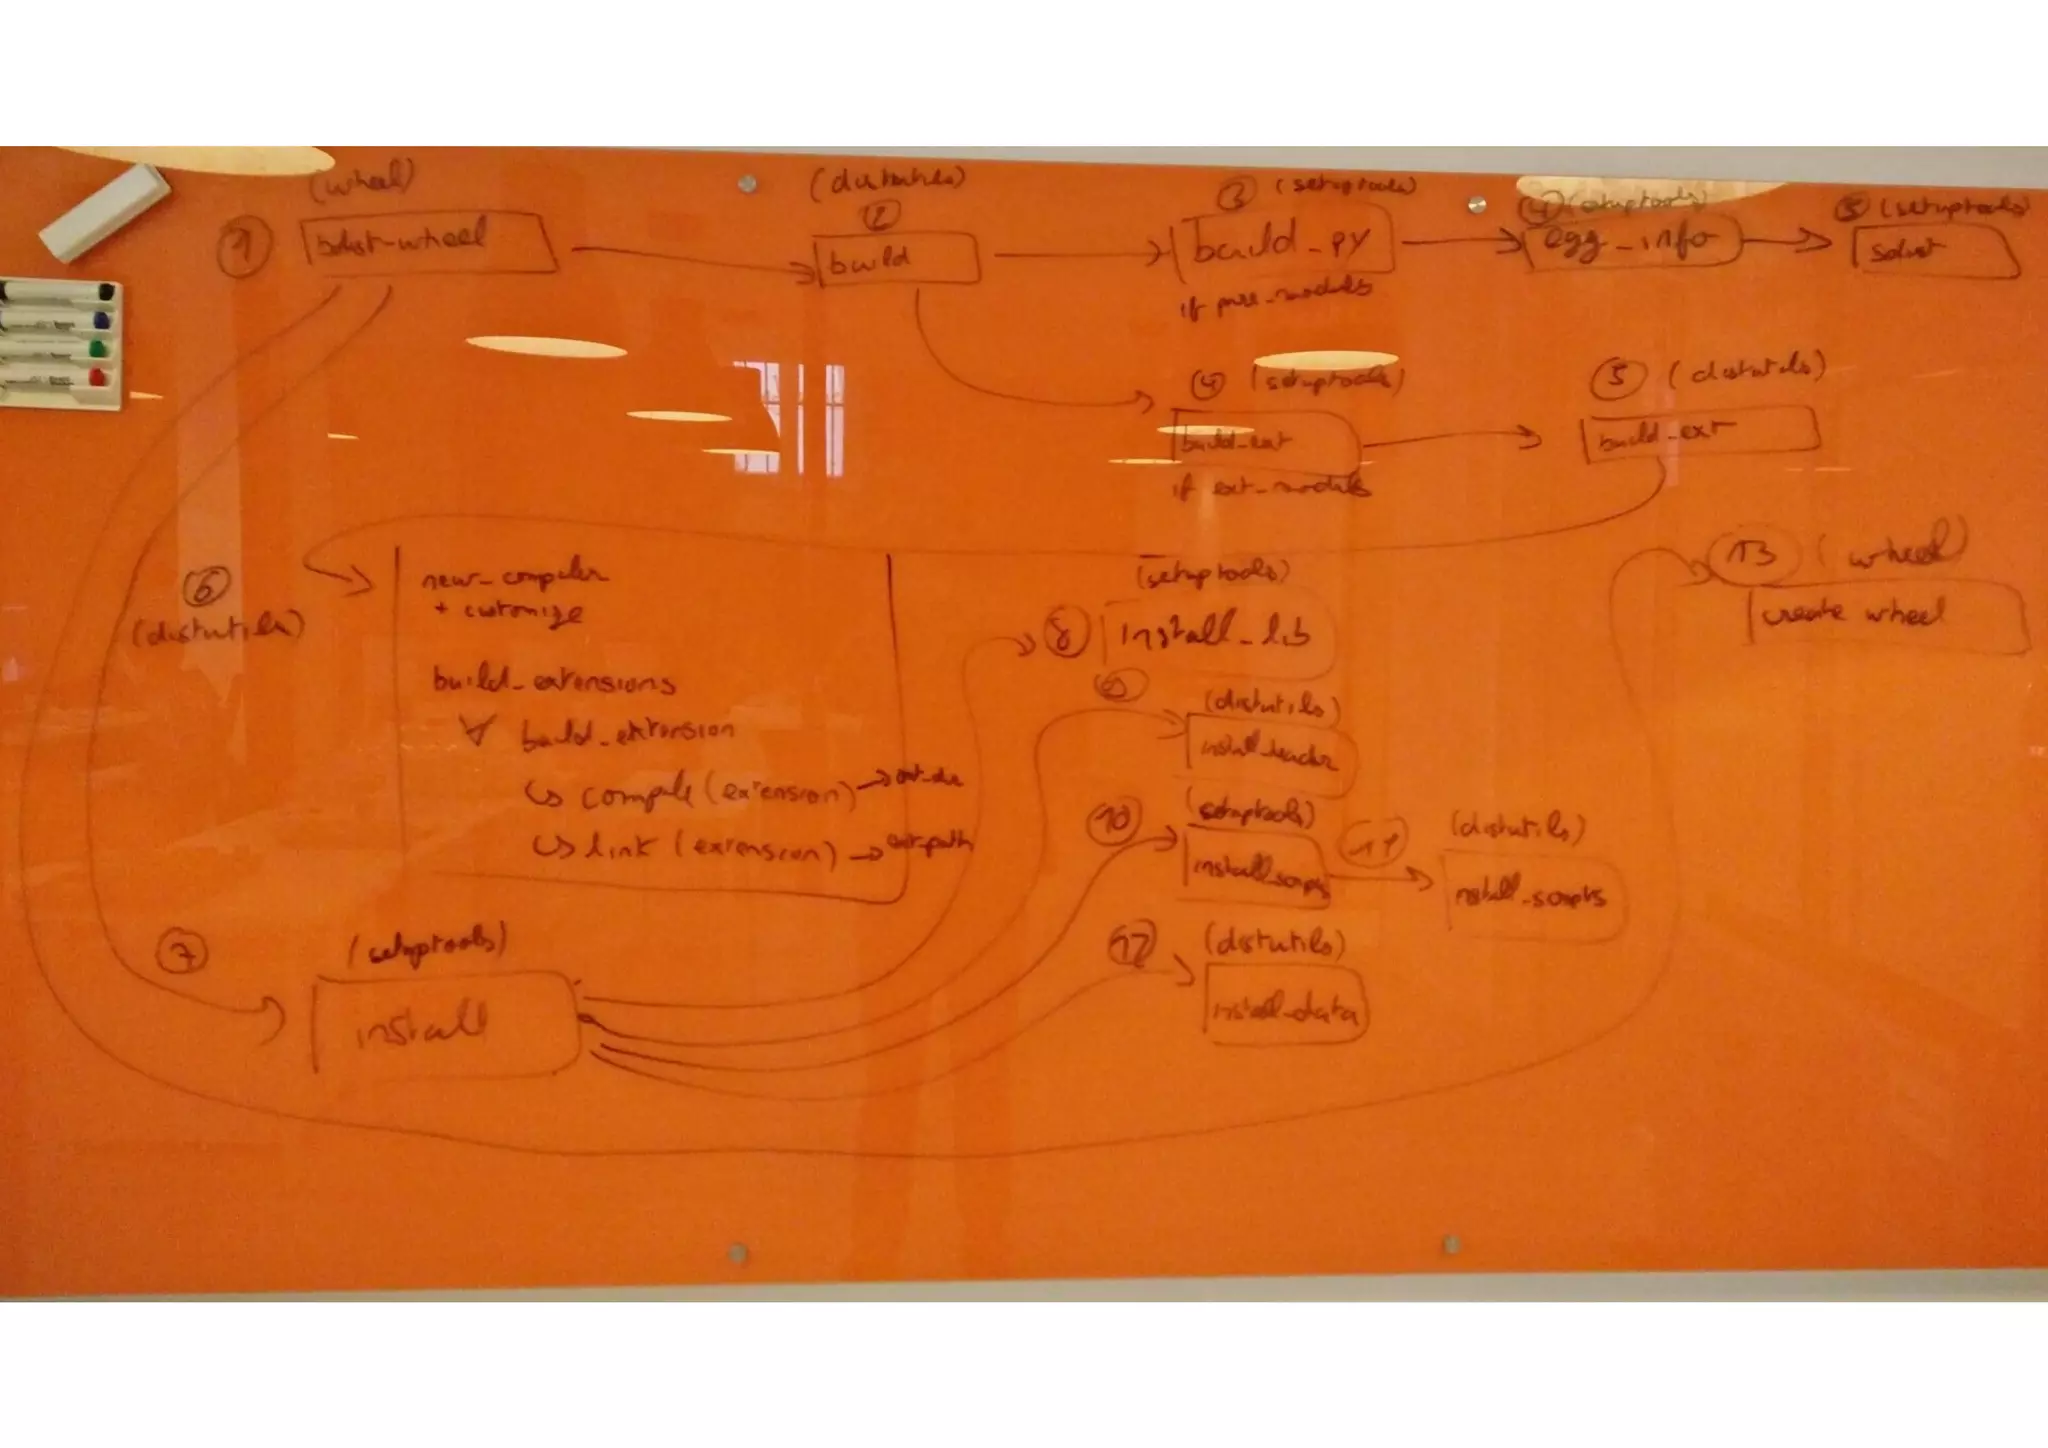 (wheel)
1
bdist-wheel
(distutils)
2
build
3 (setuptools)
build_py
if pure_modules
4 (setuptools)
egg_info
5 (setuptools)
sdist
4 (setuptools)
build_ext
if ext_modules
5 (distutils)
build_ext
6
(distutils)
new_compiler
+ customize
build_extensions
∀ build_extension
↳ compile (extension) →
↳ link (extension) → ext_path
7
(setuptools)
install
(setuptools)
8 install_lib
9
(distutils)
10
(setuptools)
install_scripts
11
(distutils)
install_scripts
12
(distutils)
install_data
13 (wheel)
create wheel